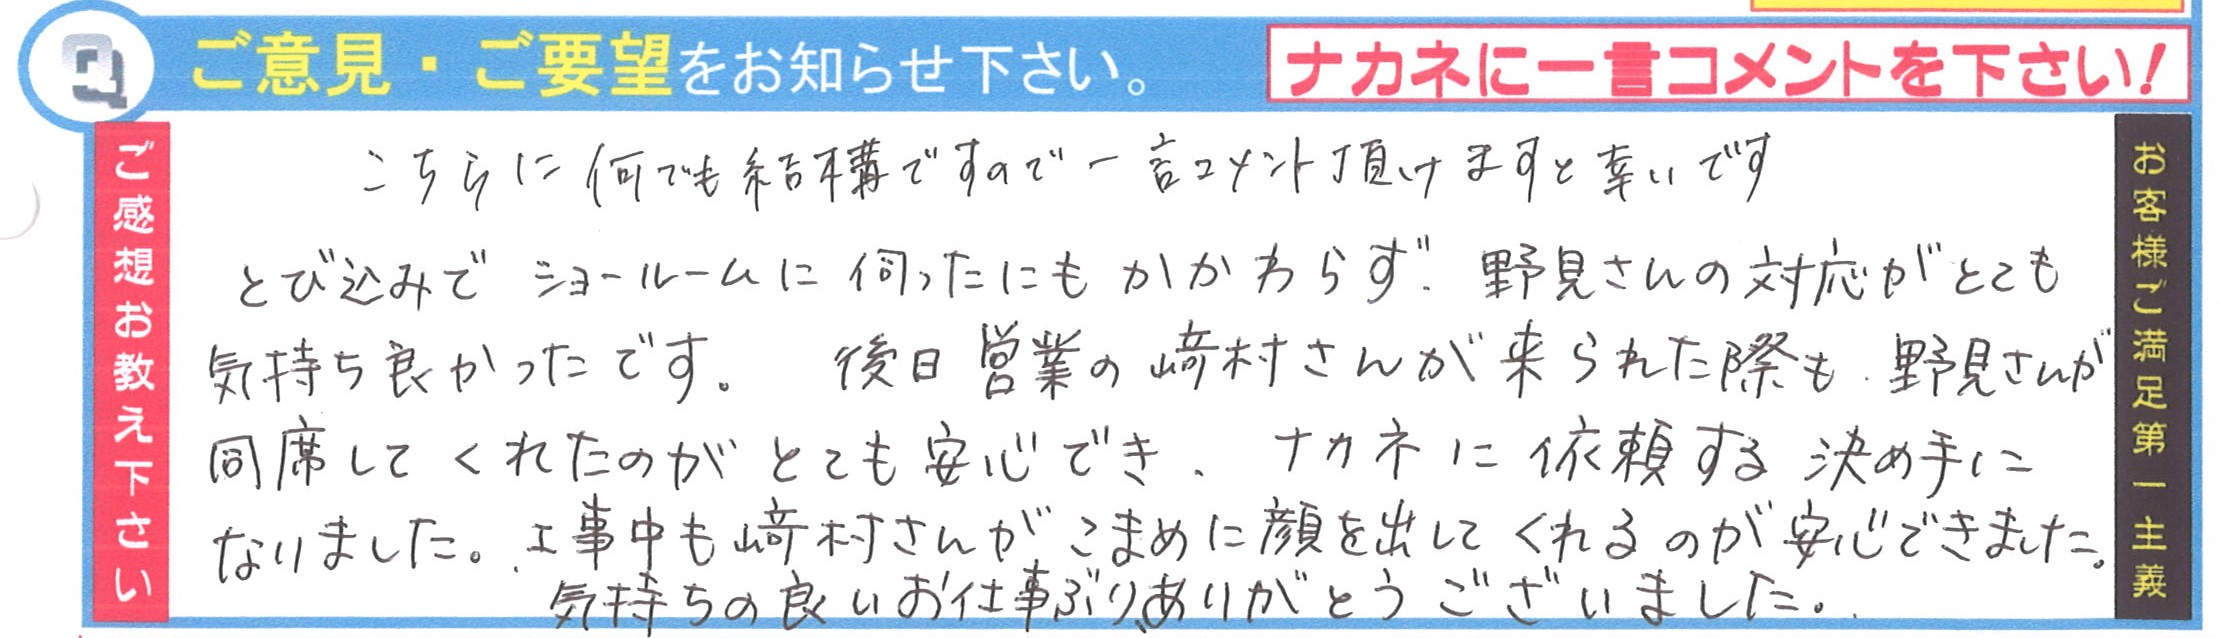 Q ご意見・ご要望をお知らせ下さい。
ナカネに一言コメントを下さい!
ご感想お教え下さい
こちらに何でも結構ですので一言コメント頂けますと幸いです
とび込みで ショールームに伺ったにもかかわらず、野見さんの対応がとても
気持ち良かったです。 後日営業の﨑村さんが来られた際も、野見さんが
同席してくれたのがとても安心でき、ナカネに依頼する決め手に
なりました。工事中も﨑村さんがこまめに顔を出してくれるのが安心できました。
気持ちの良いお仕事ぶり、ありがとうございました。
お客様ご満足第一主義